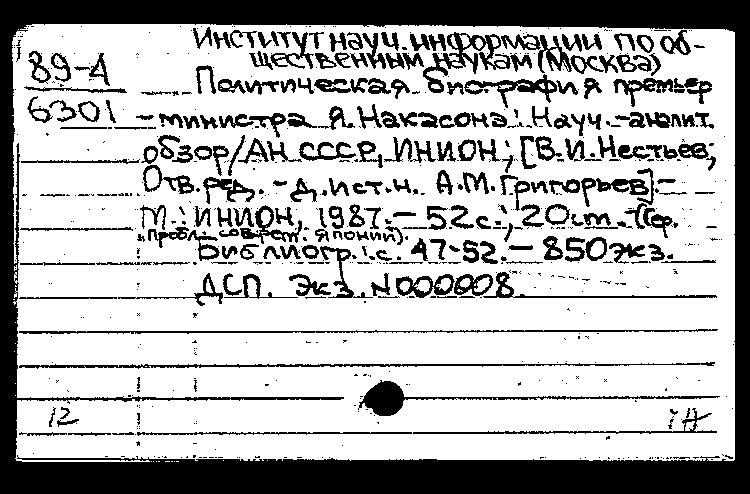 Институт науч. информации по об-
щественным наукам (Москва)
89-4
6301
Политическая биография премьер
-министра Я. Накасона: Науч.-аналит.
обзор/АН СССР, ИНИОН; [В.И. Нестьев;
Отв. ред. - д. ист. н. А.М. Григорьев]. -
М.: ИНИОН, 1987. - 52 с.; 20 см. - (Сер.
"Пробл. соврем. Японии).
Библиогр.: с. 47-52. - 850 экз.
ДСП. Экз. N000008.
12